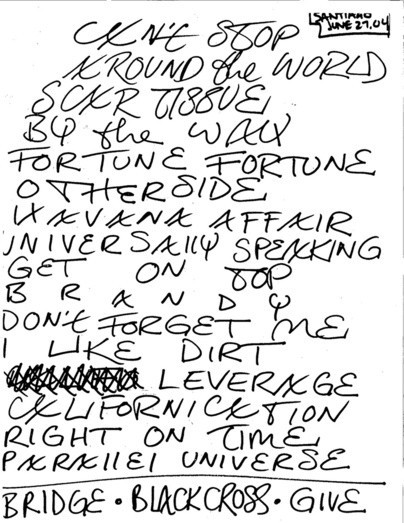 SANTIAGO
JUNE 27, 04
CAN'T STOP
AROUND the WORLD
SCAR TISSUE
BY the WAY
FORTUNE FORTUNE
OTHERSIDE
HAVANA AFFAIR
UNIVERSALLY SPEAKING
GET ON TOP
BRANDY
DON'T FORGET ME
I LIKE DIRT
LEVERAGE
CALIFORNICATION
RIGHT ON TIME
PARALLEL UNIVERSE
BRIDGE • BLACKCROSS • GIVE